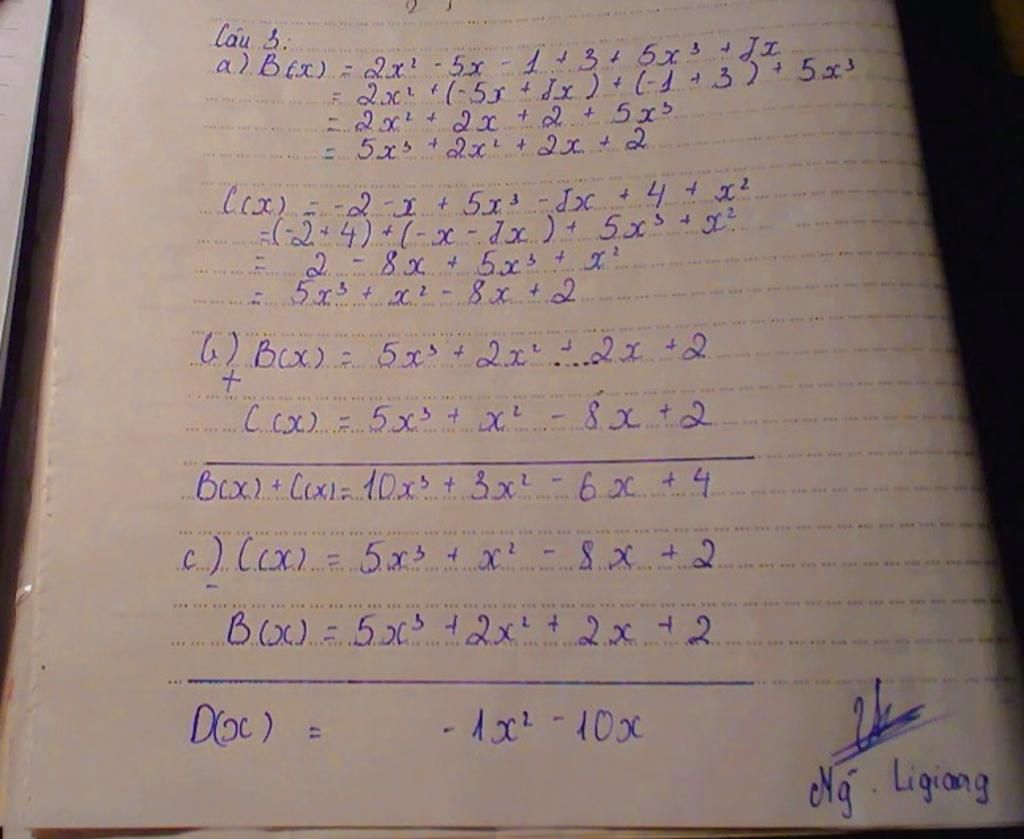 Câu 3:
a) B(x) = 2x² - 5x - 1 + 3 + 5x³ + 7x
= 2x² + (-5x + 7x) + (-1 + 3) + 5x³
= 2x² + 2x + 2 + 5x³
= 5x³ + 2x² + 2x + 2
C(x) = -2 - x + 5x³ - 7x + 4 + x²
= (-2 + 4) + (-x - 7x) + 5x³ + x²
= 2 - 8x + 5x³ + x²
= 5x³ + x² - 8x + 2
b) B(x) = 5x³ + 2x² + 2x + 2
+
C(x) = 5x³ + x² - 8x + 2
B(x) + C(x) = 10x³ + 3x² - 6x + 4
c) C(x) = 5x³ + x² - 8x + 2
-
B(x) = 5x³ + 2x² + 2x + 2
D(x) = -1x² - 10x
Ng~. Ligiang